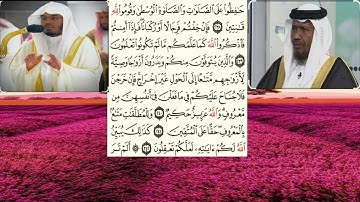 حَـٰفِظُوا۟ عَلَى ٱلصَّلَوَٰتِ وَٱلصَّلَوٰةِ ٱلْوُسْطَىٰ وَقُومُوا۟ لِلَّهِ
قَـٰنِتِينَ ٢٣٨ فَإِنْ خِفْتُمْ فَرِجَالًا أَوْ رُكْبَانًا فَإِذَآ أَمِنتُمْ
فَٱذْكُرُوا۟ ٱللَّهَ كَمَا عَلَّمَكُم مَّا لَمْ تَكُونُوا۟ تَعْلَمُونَ
٢٣٩ وَٱلَّذِينَ يُتَوَفَّوْنَ مِنكُمْ وَيَذَرُونَ أَزْوَٰجًا وَصِيَّةً
لِّأَزْوَٰجِهِم مَّتَـٰعًا إِلَى ٱلْحَوْلِ غَيْرَ إِخْرَاجٍ فَإِنْ خَرَجْنَ
فَلَا جُنَاحَ عَلَيْكُمْ فِى مَا فَعَلْنَ فِىٓ أَنفُسِهِنَّ مِن
مَّعْرُوفٍ وَٱللَّهُ عَزِيزٌ حَكِيمٌ ٢٤٠ وَلِلْمُطَلَّقَـٰتِ مَتَـٰعٌۢ
بِٱلْمَعْرُوفِ حَقًّا عَلَى ٱلْمُتَّقِينَ ٢٤١ كَذَٰلِكَ يُبَيِّنُ
ٱللَّهُ لَكُمْ ءَايَـٰتِهِۦ لَعَلَّكُمْ تَعْقِلُونَ ٢٤٢ أَلَمْ تَرَ